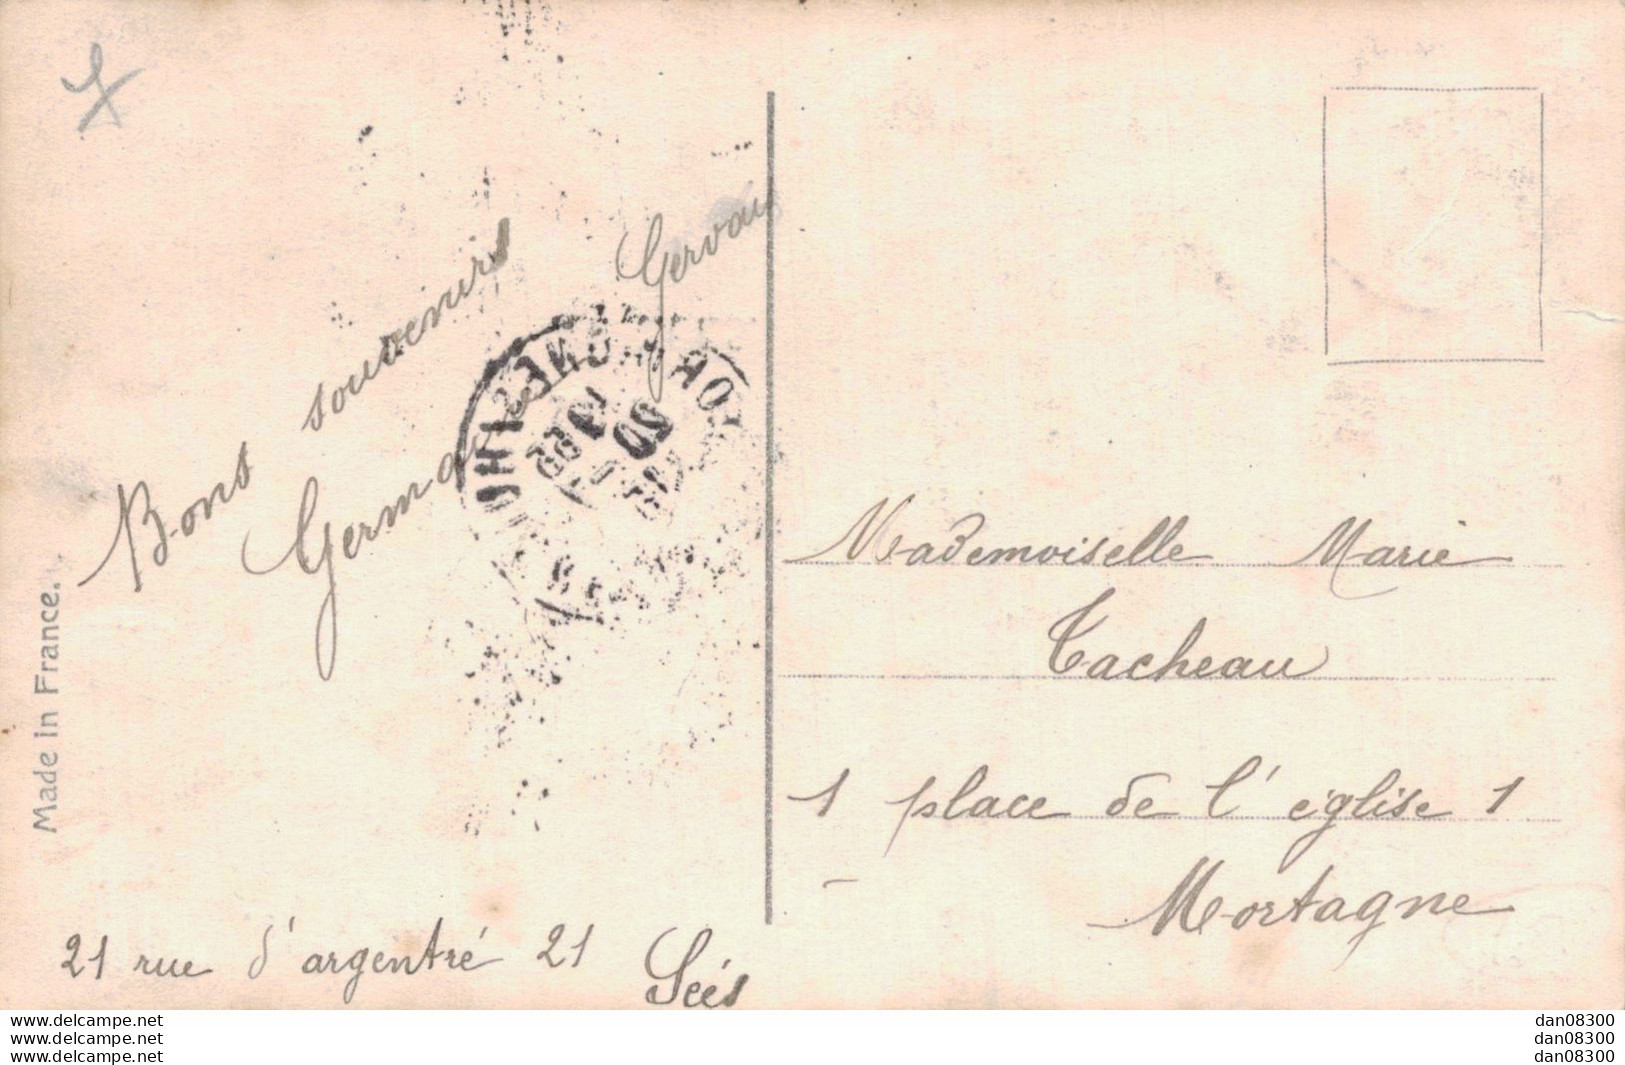 Bons souvenirs
Germaine Gervais
Made in France.
21 rue d'argentré 21 Sées
Mademoiselle Marie
Tacheau
1 place de l'église 1
Mortagne
www.delcampe.net
www.delcampe.net
www.delcampe.net
dan08300
dan08300
dan08300